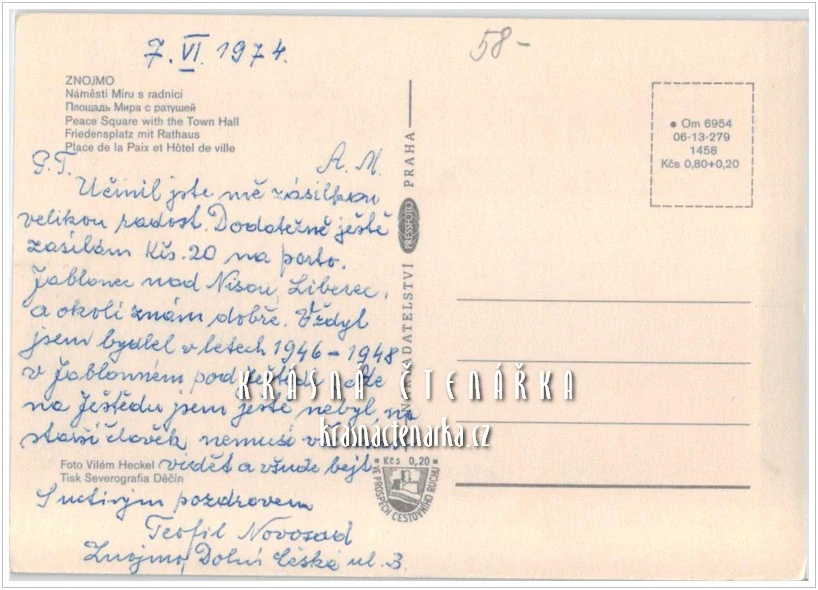 7. VI. 1974.
58-
ZNOJMO
Náměstí Míru s radnicí
Площадь Мира с ратушей
Peace Square with the Town Hall
Friedensplatz mit Rathaus
Place de la Paix et Hôtel de ville
G.T. A. M.
Učinil jste mě zásilkou
velikou radost. Dodatečně ještě
zasílám Kčs. 20 na porto.
Jablonec nad Nisou, Liberec,
a okolí znám dobře. Vždyť
jsem bydlel v letech 1946-1948
v Jablonném pod Ještědem. Ale
na Ještědu jsem ještě nebyl, no
starší člověk nemusí
vidět a všude bejt.
S uctivým pozdravem
Teofil Novosad
Znojmo, Dolní Česká ul. 3.
Foto Vilém Heckel
Tisk Severografia Děčín
NAKLADATELSTVÍ PRESSFOTO PRAHA
• Om 6954
06-13-279
1458
Kčs 0,80+0,20
KRÁSNÁ ČTENÁŘKA
krasnactenarka.cz
Kčs 0,20
VE PROSPĚCH CESTOVNÍHO RUCHU